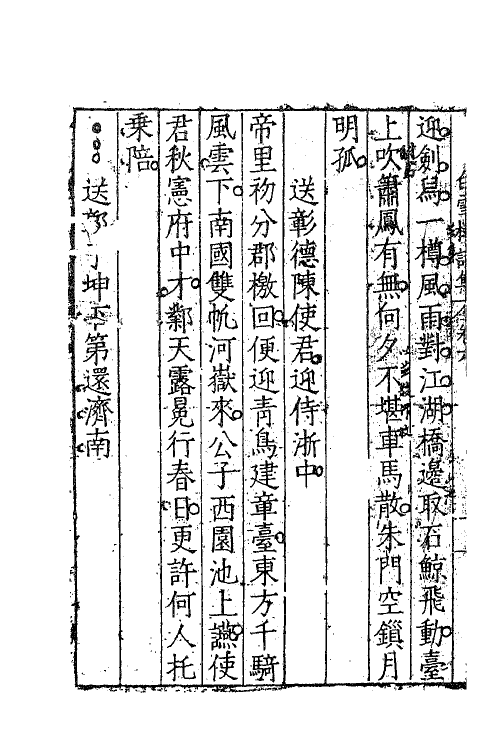 迎劍舄一樽風雨對江湖橋邊取石鯨飛動臺
上吹簫鳳有無何夕不堪車馬散朱門空鎖月
明孤
送彰德陳使君迎侍浙中
帝里初分郡檄回便迎青鳥建章臺東方千騎
風雲下南國雙帆河嶽來公子西園池上讌使
君秋憲府中才鄴天露冕行春日更許何人托
乗陪
送郭子坤下第還濟南